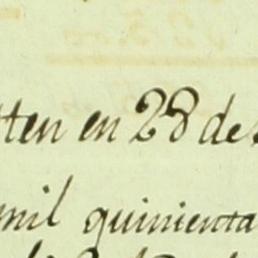 tten en 28 de
mil quinienta